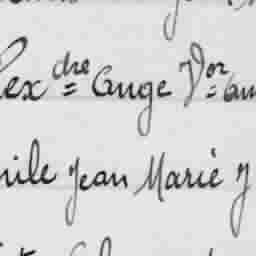 lex dre Ange Vor Am
mile Jean Marie J